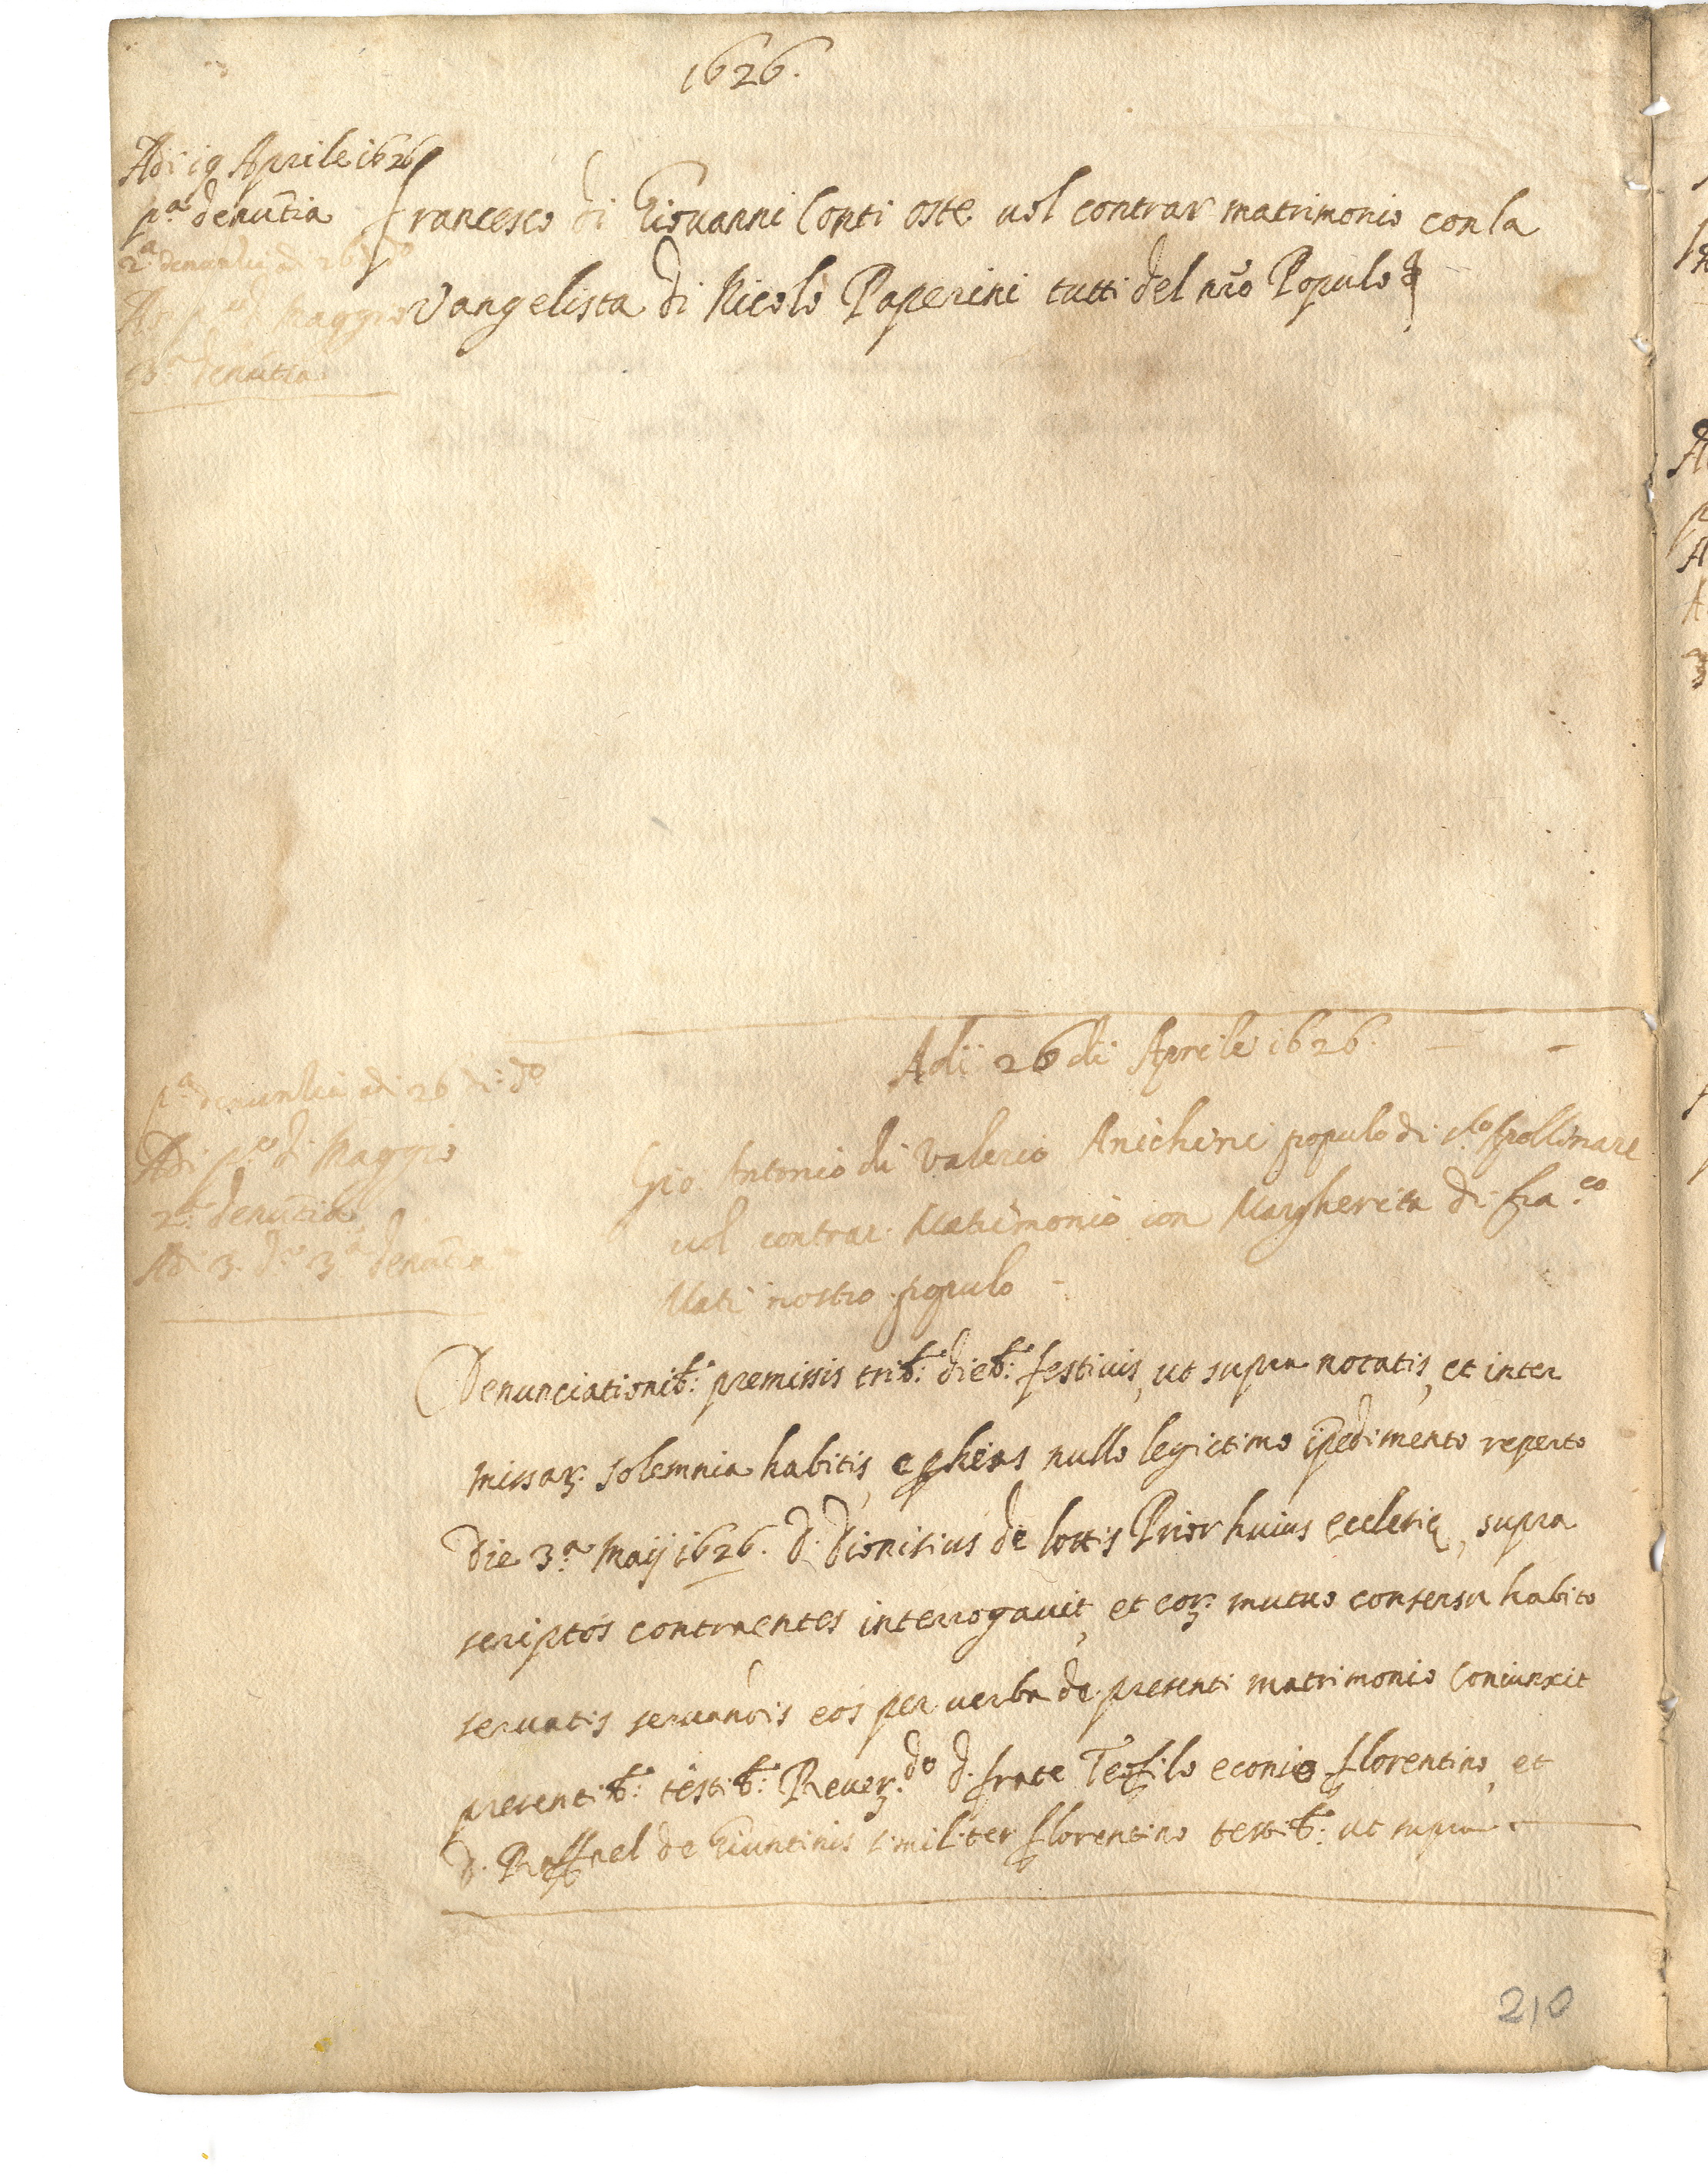 1626.
Adi 19 Aprile 1626
pª denũtia
2ª denuntia adi 26 dº
Adi pº di Maggio
3ª denũtia
Francesco di Giovanni Conti oste uol contrar matrimonio con la
Vangelista di Nicolò Paperini tutti del nrõ Populo
Adi 26 di Aprile 1626.
pª denuntia adi 26 di dº
Adi pº di Maggio
2ª denũtia
Adi 3 dº 3ª denũtia
Gio Antonio di Valerio Anichini populo di sto Apollinare
uol contrar Matrimonio con Margherita di Fraco
Mati nostro populo
Denunciationib: premissis trib: dieb: festiuis, ut supra notatis, et inter
missarꝫ solemnia habitis, nullo legictimo ip̃edimento reperto
Die 3ª Maij 1626. D. Dionisius de lottis Prior huius ecclesię, supra
scriptos contraentes interrogauit, et eorꝫ mutuo consensu habito
seruatis seruandis eos per uerba de presenti matrimonio Coniunxit
presentib: testib: Reuerꝫdo d. frate Teofilo florentino, et
d. Raffael de Giuntinis similiter florentino testib: ut supra
210